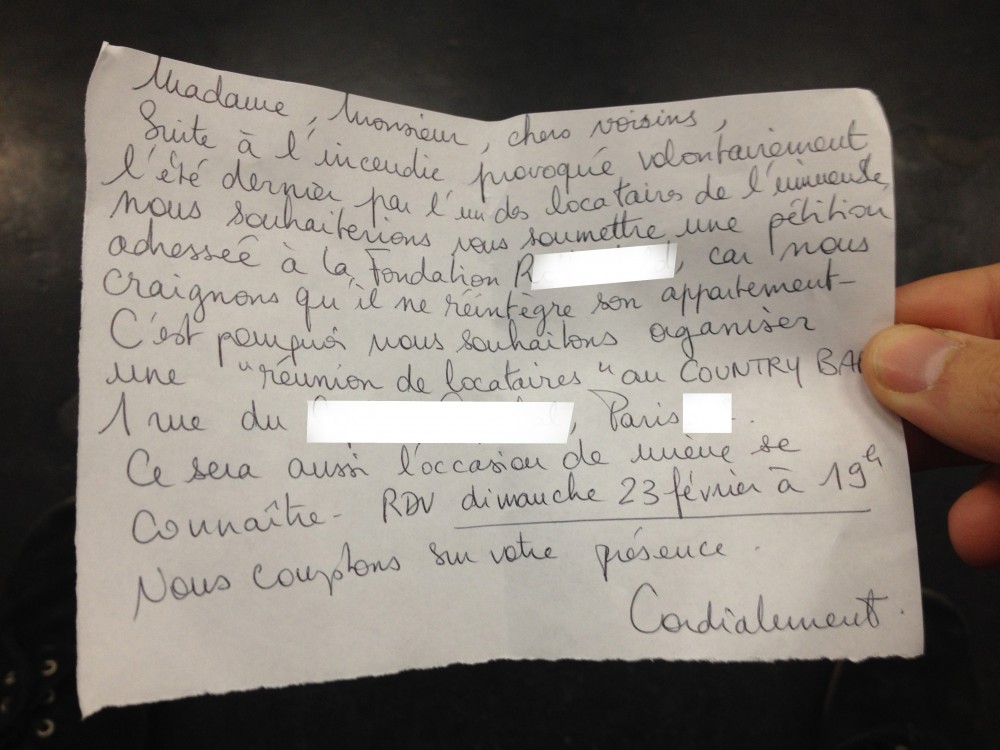 Madame, Monsieur, chers voisins,
Suite à l'incendie provoqué volontairement
l'été dernier par l'un des locataires de l'immeuble,
nous souhaiterions vous soumettre une pétition
adressée à la Fondation R , car nous
craignons qu'il ne réintègre son appartement-
C'est pourquoi nous souhaitons organiser
une "réunion de locataires" au COUNTRY BA
1 rue du , Paris .
Ce sera aussi l'occasion de mieux se
connaître- RDV dimanche 23 février à 19h
Nous comptons sur votre présence.
Cordialement.